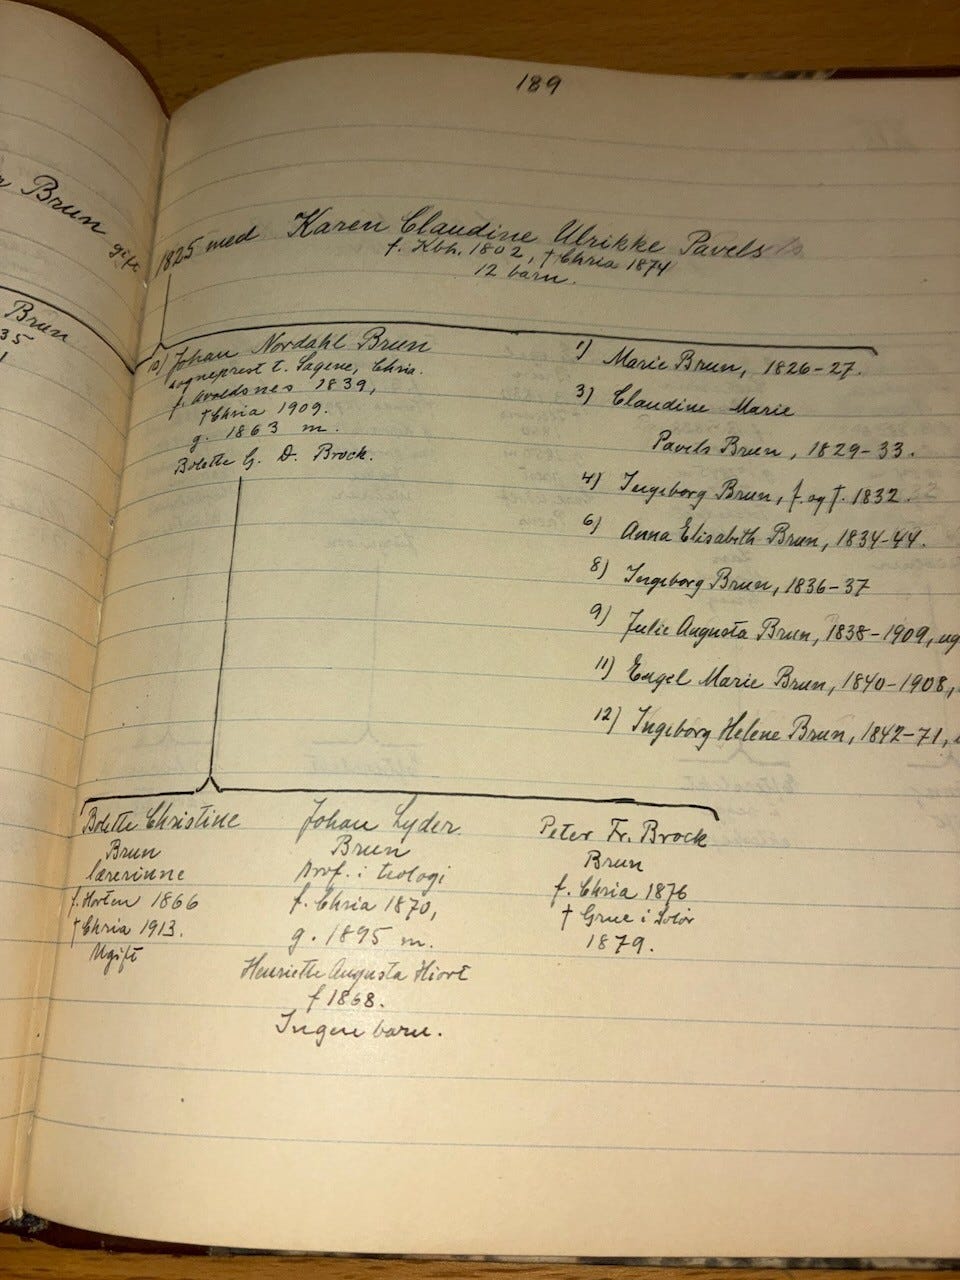 189
Brun
gift
1825 med Karen Claudine Ulrikke Pavels
f. Kbh. 1802, † Chria 1874
12 barn.
Brun
35
10) Johan Nordahl Brun
sogneprest t. Sagene, Chria.
f. Avaldsnes 1839,
† Chria 1909.
g. 1863 m.
Bolette G. D. Brock.
1) Marie Brun, 1826-27.
3) Claudine Marie
Pavels Brun, 1829-33.
4) Ingeborg Brun, f. og †. 1832.
6) Anna Elisabeth Brun, 1834-44.
8) Ingeborg Brun, 1836-37
9) Julie Augusta Brun, 1838-1909, ug
11) Engel Marie Brun, 1840-1908,
12) Ingeborg Helene Brun, 1842-71,
Bolette Christine
Brun
lærerinne
f. Horten 1866
† Chria 1913.
Ugift
Johan Lyder
Brun
Prof. i teologi
f. Chria 1870,
g. 1895 m.
Henriette Augusta Hiort
f 1868.
Ingen barn.
Peter Fr. Brock
Brun
f. Chria 1876
† Grue i Solør
1879.